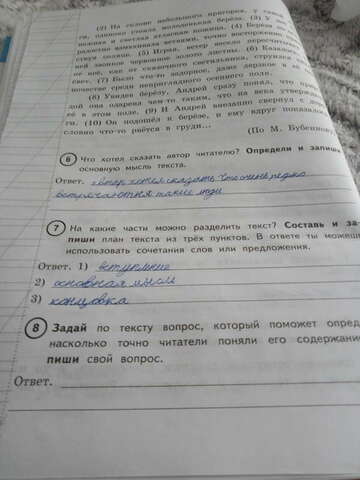 (2) На склоне небольшого пригорка, у самой
ги, одиноко стояла молоденькая берёзка. (3) У
нежная и светлая атласная кожица. (4) Берёза
радостно взмахивала ветвями, точно восторженно
ствуя солнце. (5) Играя, ветер весело пересчитывал
ней звонкие червонное золото листвы. (6) Казалось,
от неё, как от сказочного светильника, струился
свет. (7) Было что-то задорное, даже дерзкое в её
ночестве среди неприглядного осеннего поля.
(8) Увидев берёзу, Андрей сразу понял, что природ
дой она одарена чем-то таким, что на века утвержда
её в этом поле. (9) И Андрей внезапно свернул с до
ги. (10) Он подошёл к берёзе, и ему вдруг показалось
словно что-то рвётся в груди...
(По М. Бубеннову)
6 Что хотел сказать автор читателю? Определи и запиши
основную мысль текста.
Ответ. автор хотел сказать что очень редко
встречаются такие люди
7 На какие части можно разделить текст? Составь и за-
пиши план текста из трёх пунктов. В ответе ты можешь
использовать сочетания слов или предложения.
Ответ. 1) вступление
2) основная мысль
3) концовка
8 Задай по тексту вопрос, который поможет опред
насколько точно читатели поняли его содержание
пиши свой вопрос.
Ответ.